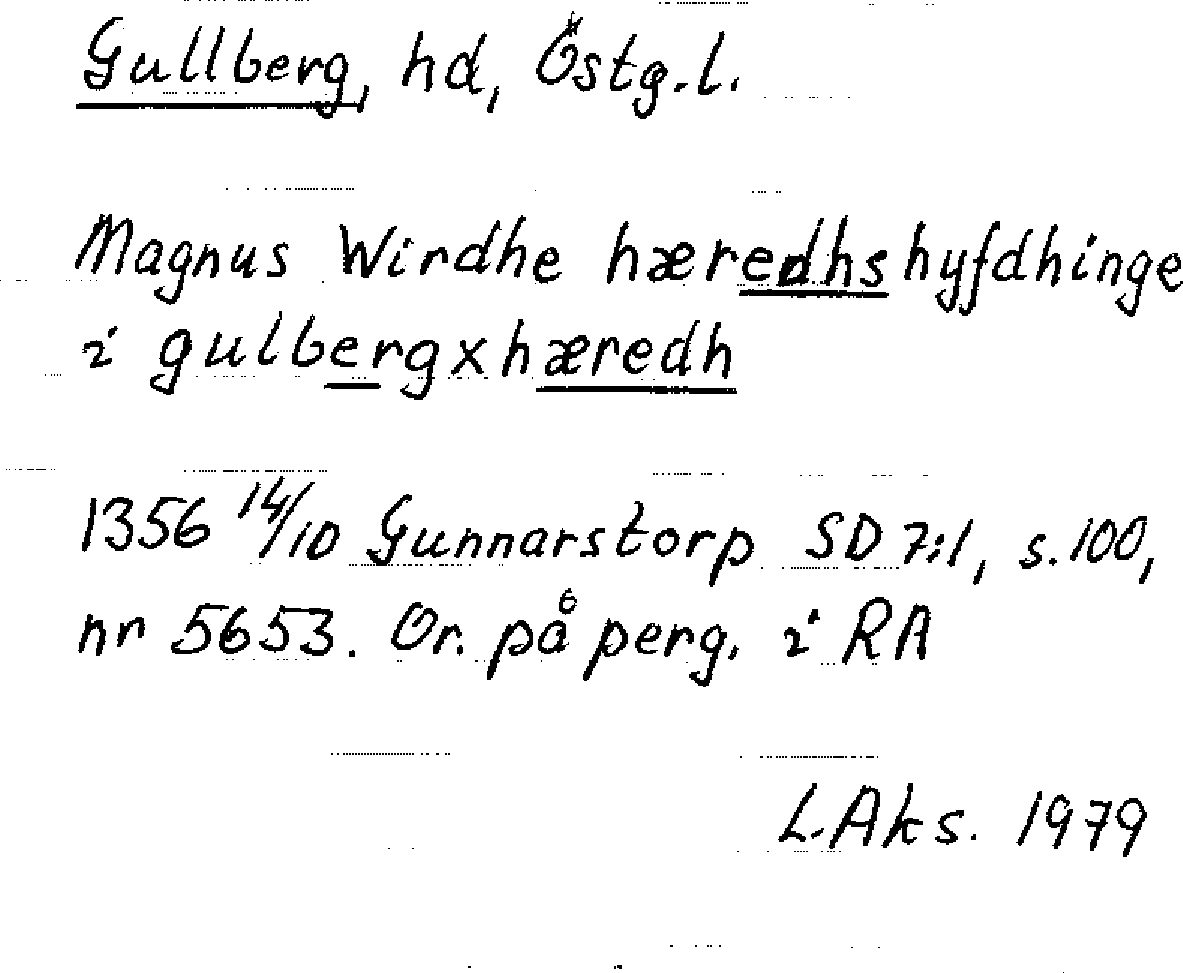 Gullberg, hd, Östg.l.
Magnus Wirdhe hæredhshyfdhinge
i gulbergxhæredh
1356 14/10 Gunnarstorp SD 7:1, s.100,
nr 5653. Or. på perg. i RA
L.Aks. 1979